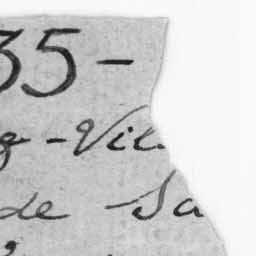 35-
-Vil
de -Sa